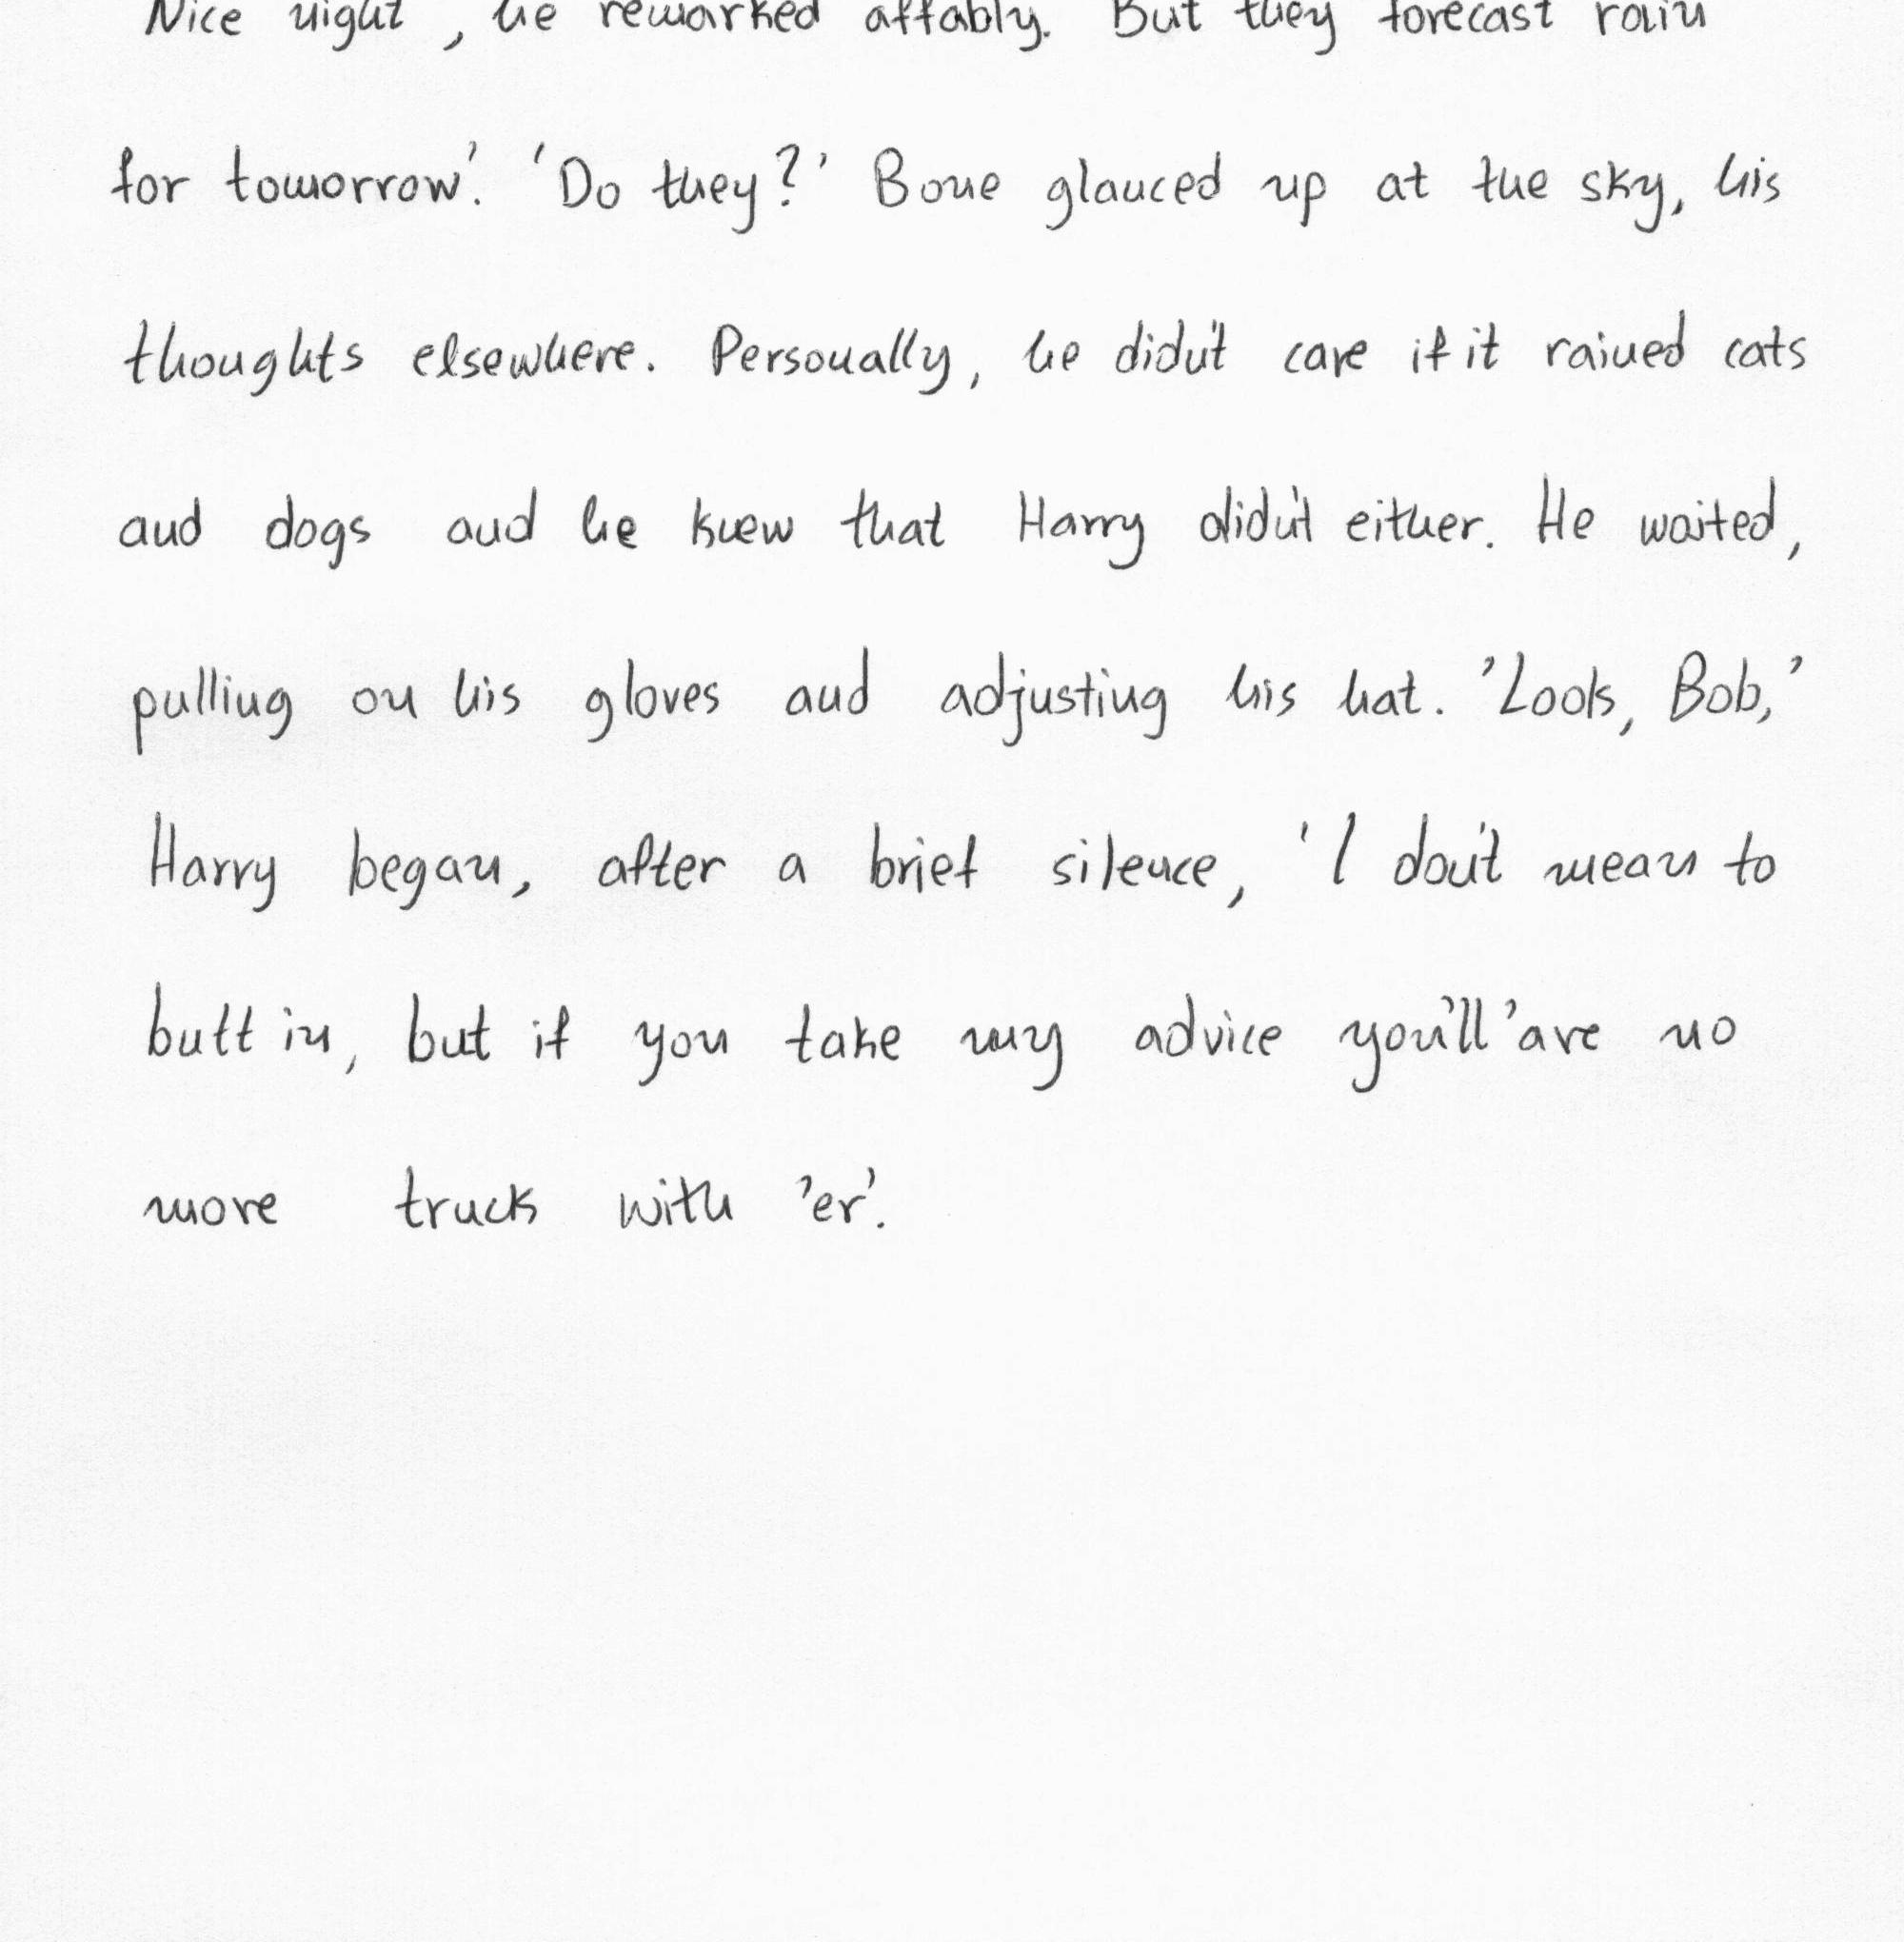 Nice night, he remarked affably. But they forecast rain
for tomorrow'. 'Do they?' Bone glanced up at the sky, his
thoughts elsewhere. Personally, he didn't care if it rained cats
and dogs and he knew that Harry didn't either. He waited,
pulling on his gloves and adjusting his hat. 'Look, Bob,'
Harry began, after a brief silence, 'I don't mean to
butt in, but if you take my advice you'll 'ave no
more truck with 'er'.